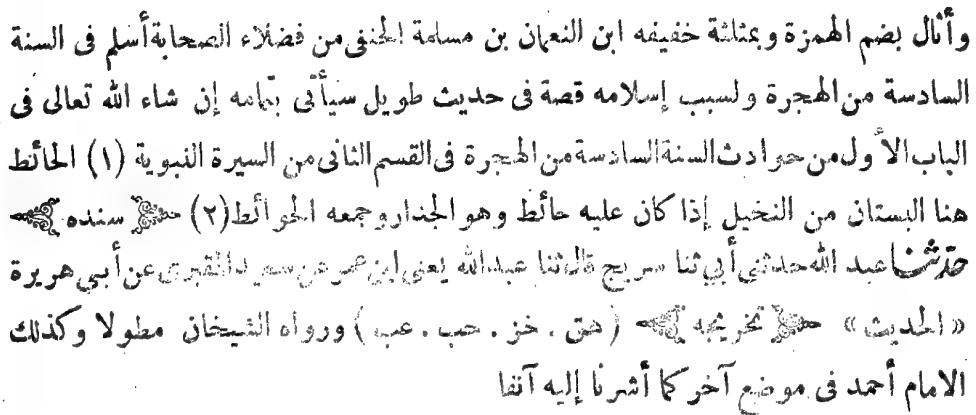 وأثال بضم الهمزة وبمثلثة خفيفه ابن النعمان بن مسلمة الحنفى من فضلاء الصحابة أسلم فى السنة
السادسة من الهجرة ولسبب إسلامه قصة فى حديث طويل سيأتى بتمامه إن شاء الله تعالى فى
الباب الأول من حوادث السنة السادسة من الهجرة فى القسم الثانى من السيرة النبوية (١) الحائط
هنا البستان من النخيل إذا كان عليه حائط وهو الجدار وجمعه الحوائط (٢) سنده
حدثنا عبد الله حدثنى أبى ثنا سريج قال ثنا عبدالله يعنى ابن عمر عن سعيد المقبرى عن أبى هريرة
«الحديث» تخريجه (هق . خز . حب . عب) ورواه الشيخان مطولا وكذلك
الامام أحمد فى موضع آخر كما أشرنا إليه آنفا